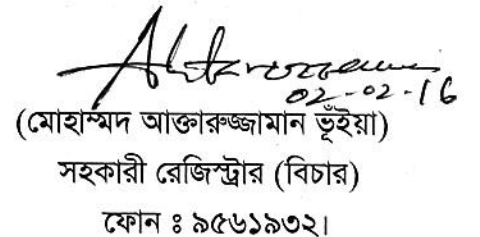 02-02-16
(মোহাম্মদ আক্তারুজ্জামান ভূঁইয়া)
সহকারী রেজিস্ট্রার (বিচার)
ফোন ঃ ৯৫৬১৯৩২।